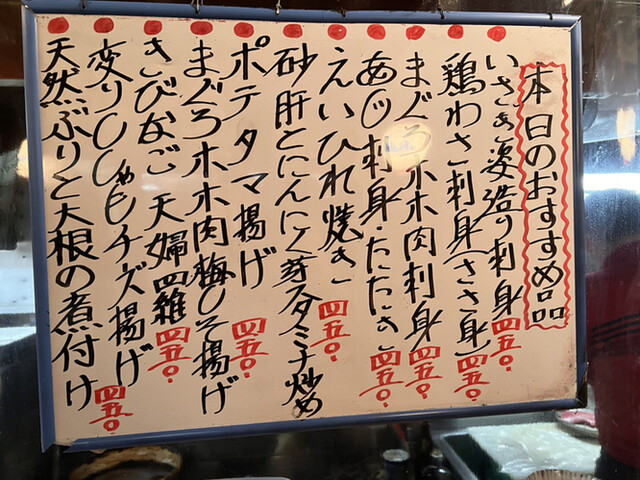 本日のおすすめ品
いさき姿造り刺身四五〇
鶏わさ刺身(ささ身)四五〇
まぐろホホ肉刺身四五〇
あじ刺身・たたき四五〇
えいひれ焼き四五〇
砂肝とにんにく芽スタミナ炒め
ポテタマ揚げ四五〇
まぐろホホ肉梅しそ揚げ
きびなご天婦羅四五〇
変りししゃもチーズ揚げ四五〇
天然ぶりと大根の煮付け